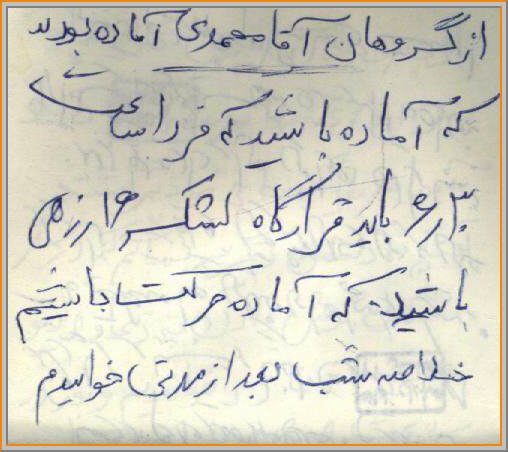 از گروهان آقا محمدی آماده بودند
که آماده باشید که فردا ساعت
۶/۳۰ باید قرارگاه لشکر
باشید. که آماده حرکت باشیم
خلاصه شب بعد از مدتی خوابیدم